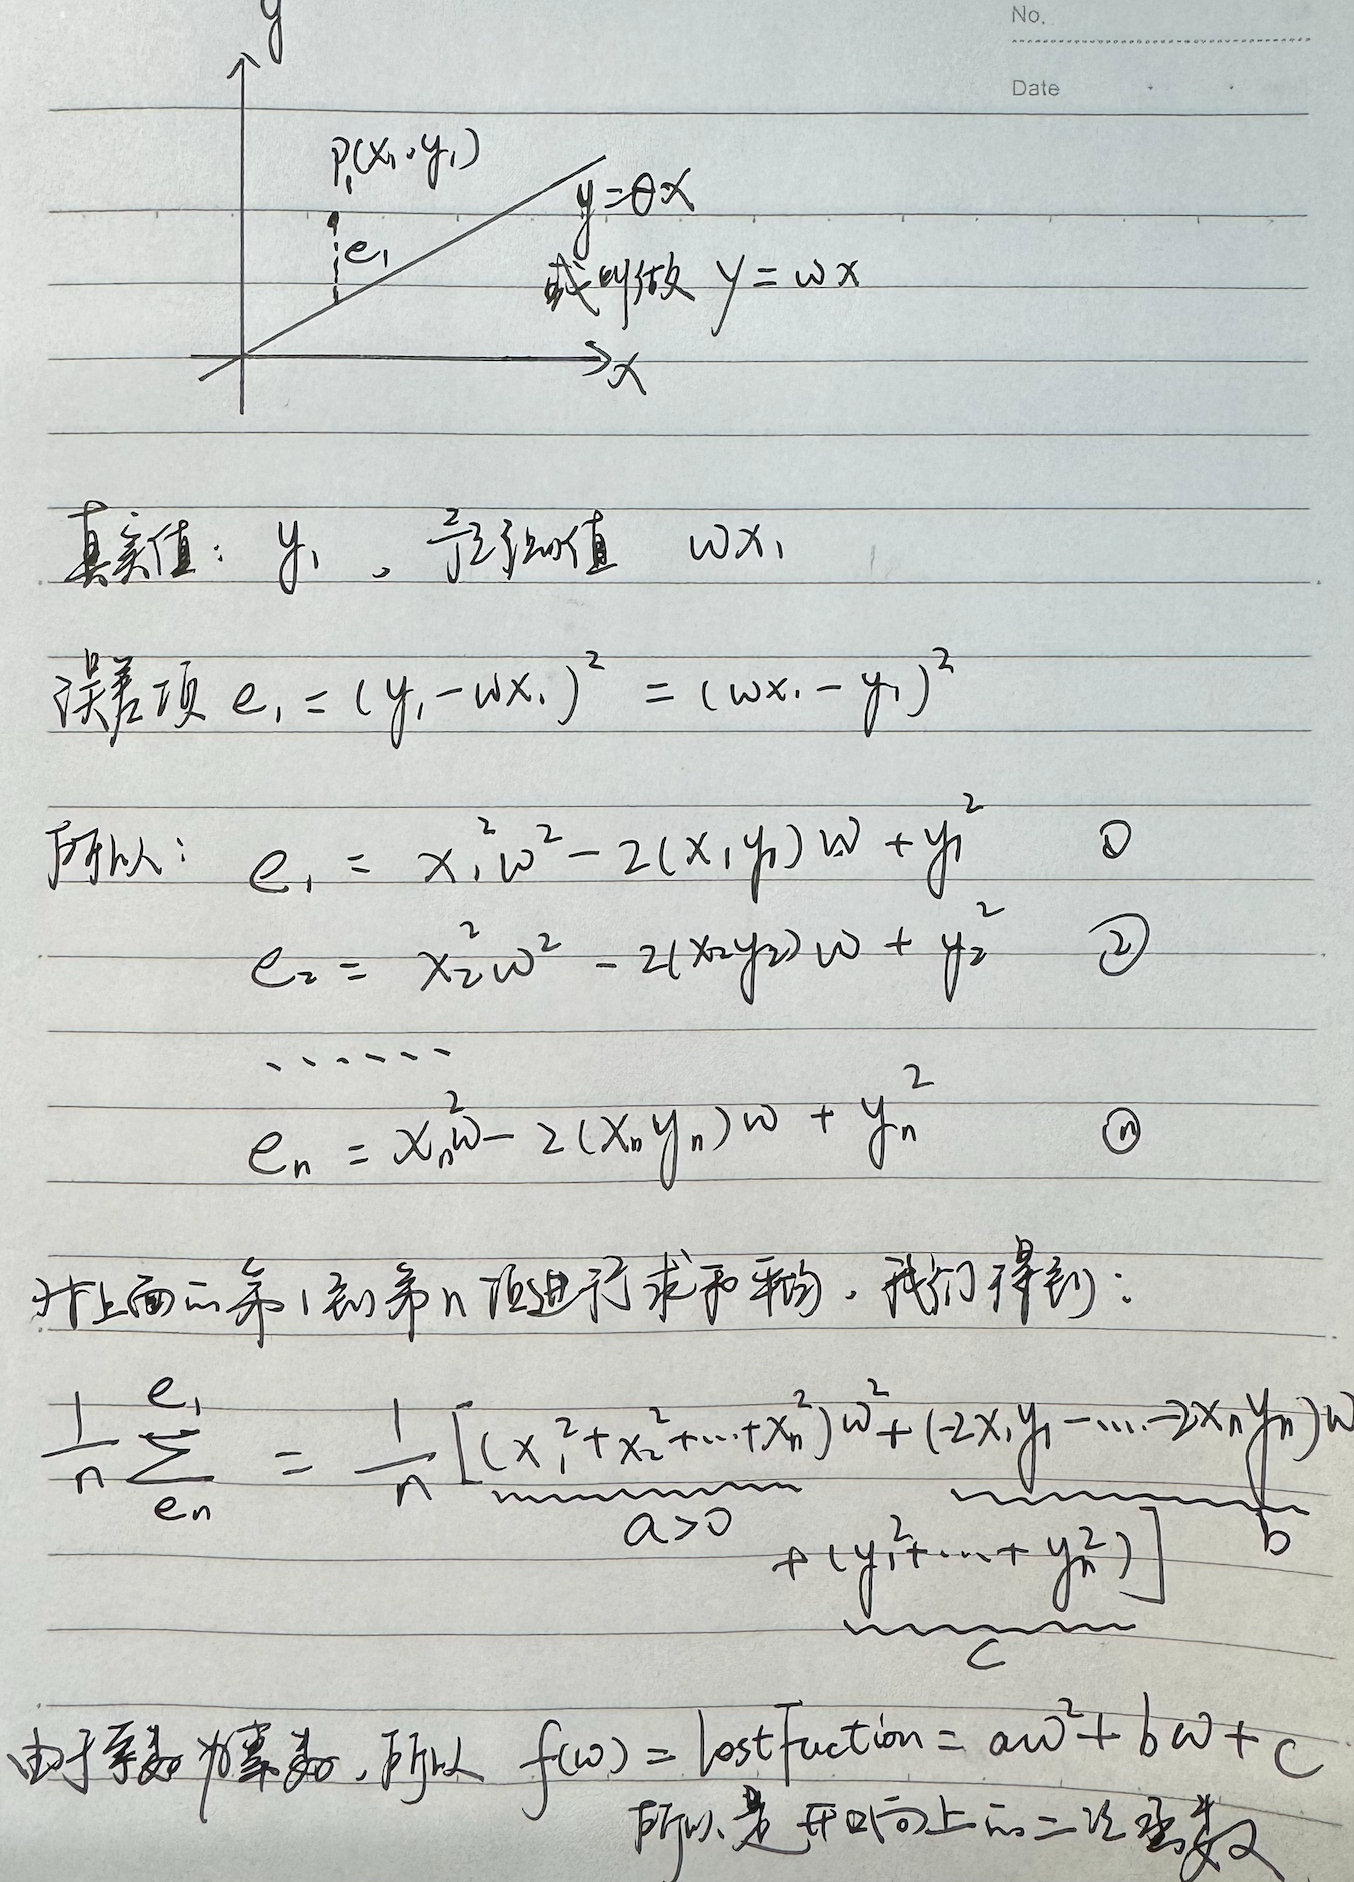 No.
Date
y
P₁(x₁,y₁)
e₁
y=θx
或叫做 y=wx
x
真实值: y₁ , 预测值 wx₁
误差项 e₁ = (y₁-wx₁)² = (wx₁-y₁)²
所以: e₁ = x₁²w²-2(x₁y₁)w+y₁² ①
e₂ = x₂²w²-2(x₂y₂)w+y₂² ②
......
eₙ = xₙ²w-2(xₙyₙ)w+yₙ² ⓝ
对上面的第1到第n项进行求和平均,我们得到:
1/n Σ e₁ eₙ = 1/n [(x₁²+x₂²+...+xₙ²)w²+(-2x₁y₁-....-2xₙyₙ)w
a>0 b
+(y₁²+...+yₙ²)]
c
由于系数为常数,所以 f(w) = lost Fuction = aw²+bw+c
所以是开口向上的二次函数